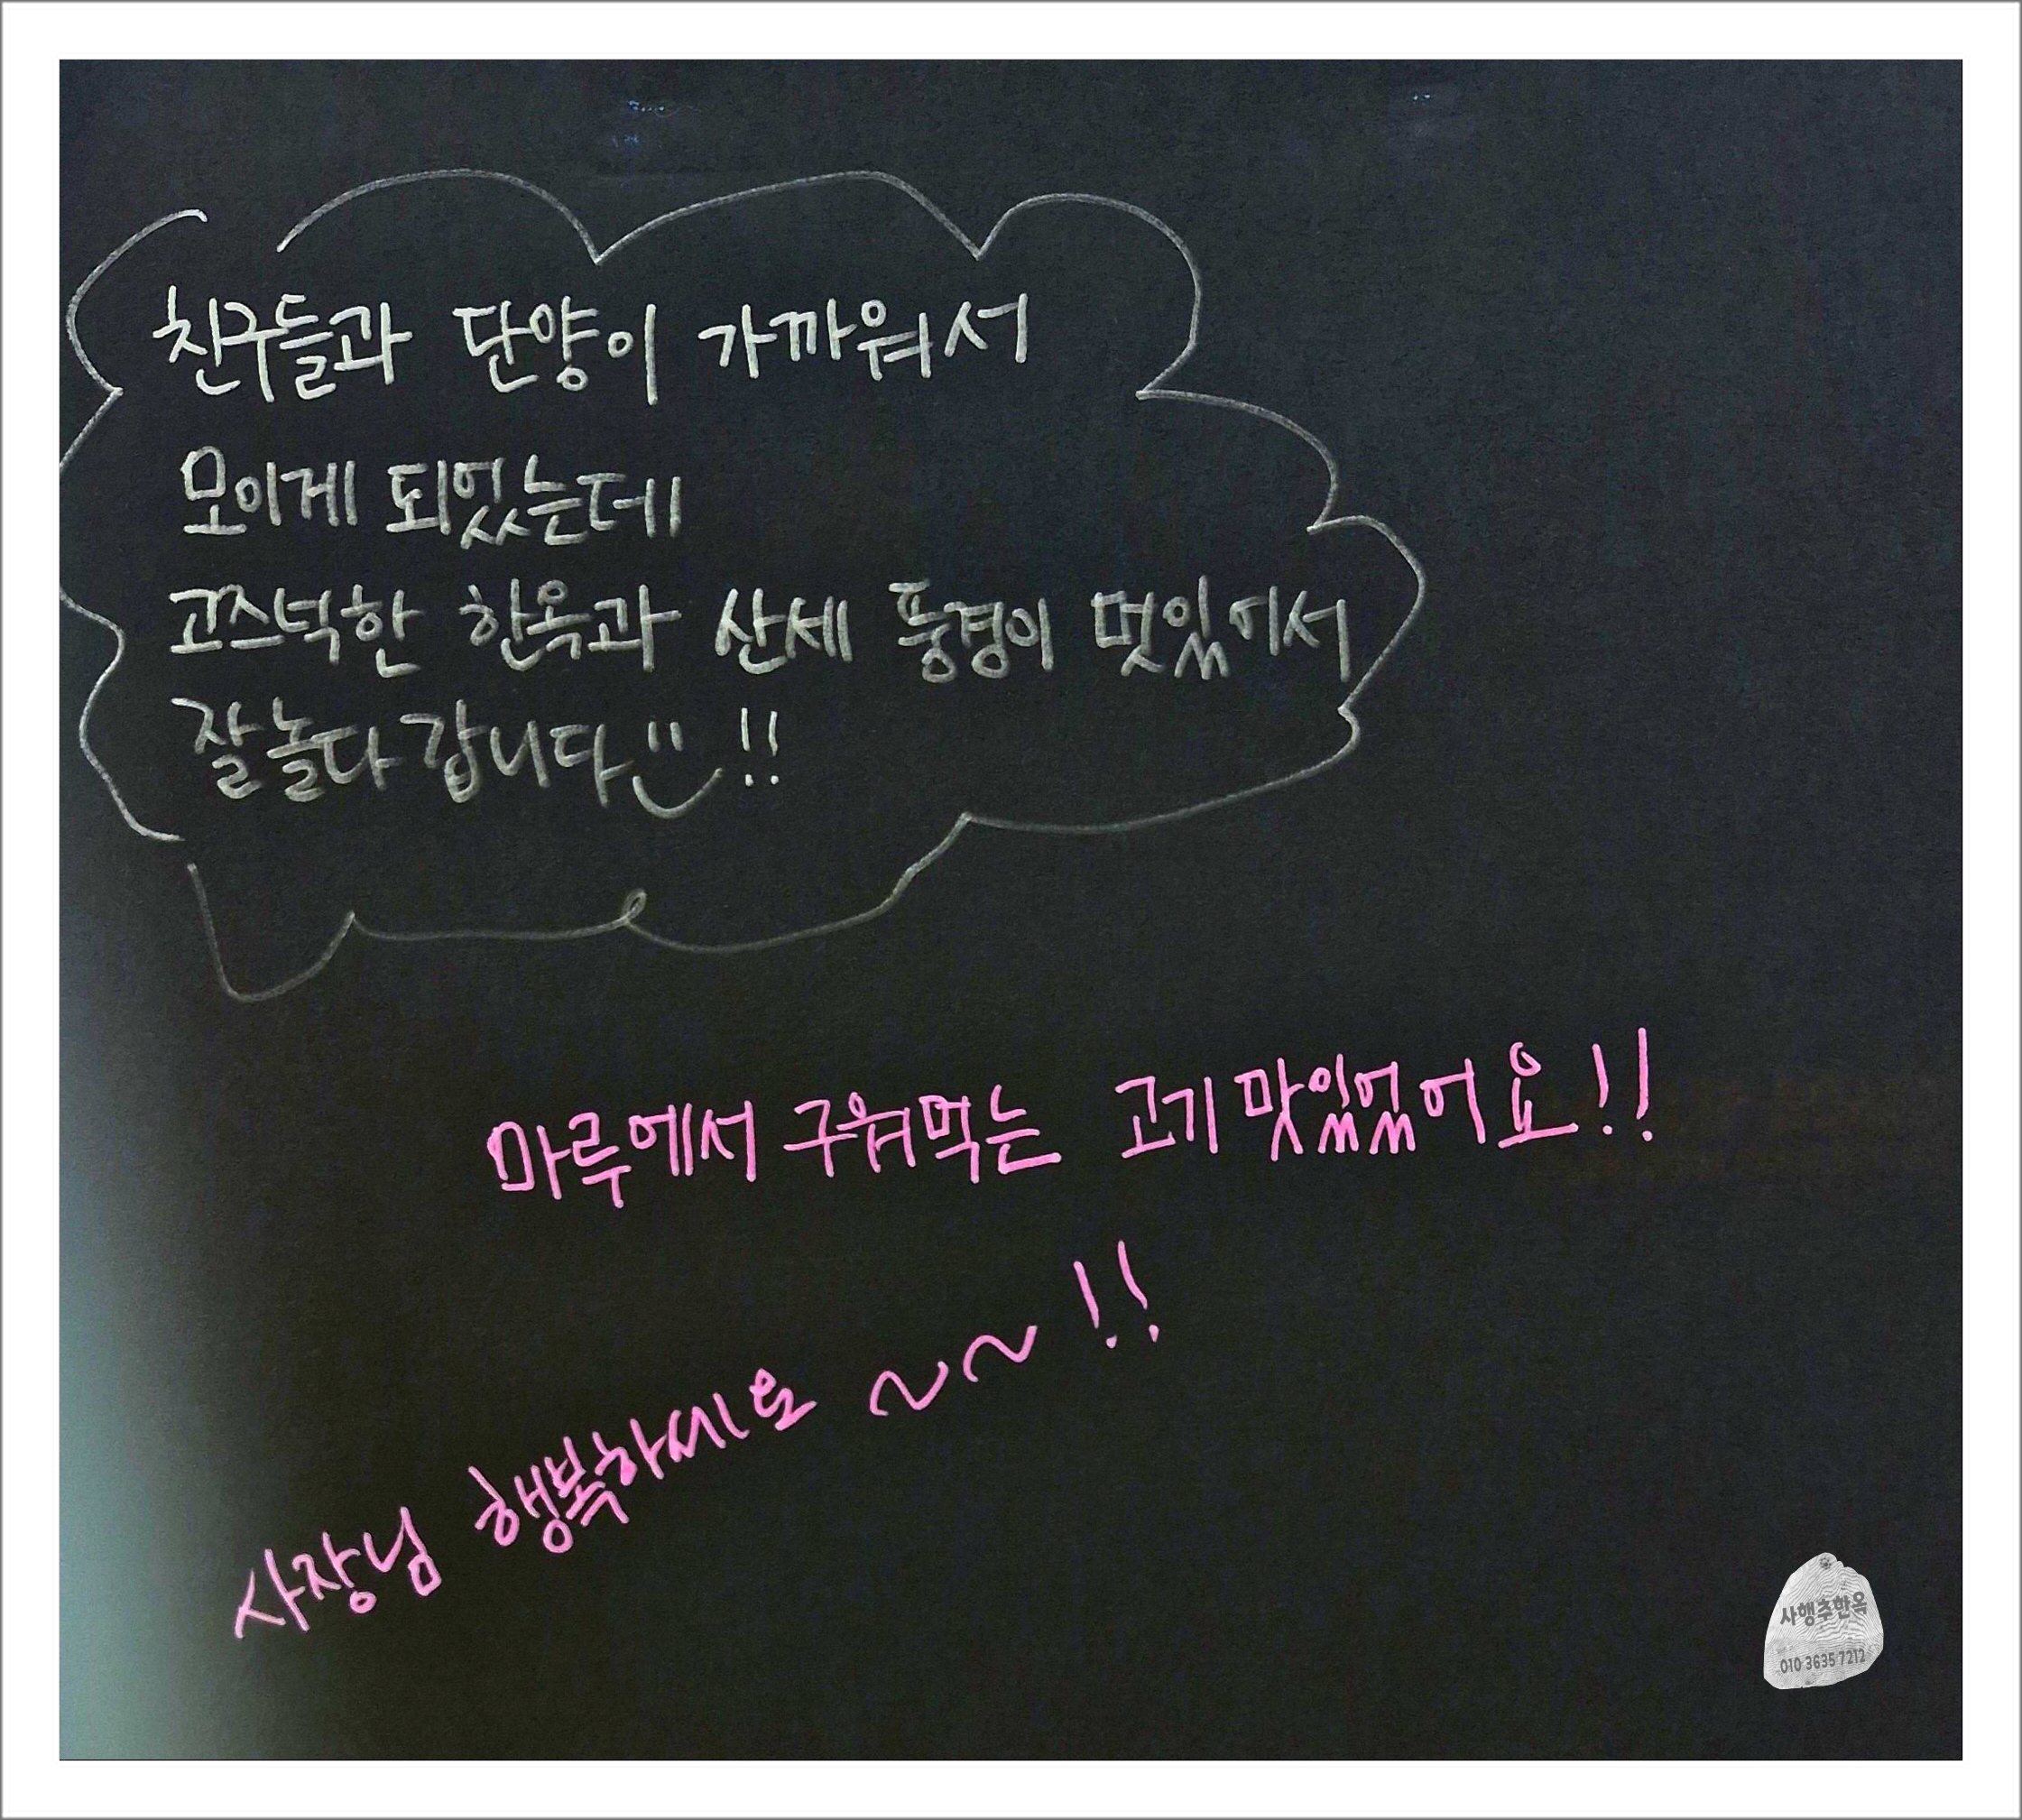 친구들과 단양이 가까워서
모이게 되었는데
고즈넉한 한옥과 산세 풍경이 멋있어서
잘 놀다 갑니다!!
마루에서 구워먹는 고기 맛있었어요!!
사장님 행복하세요 ~~!!
사행추한옥
010 3635 7212